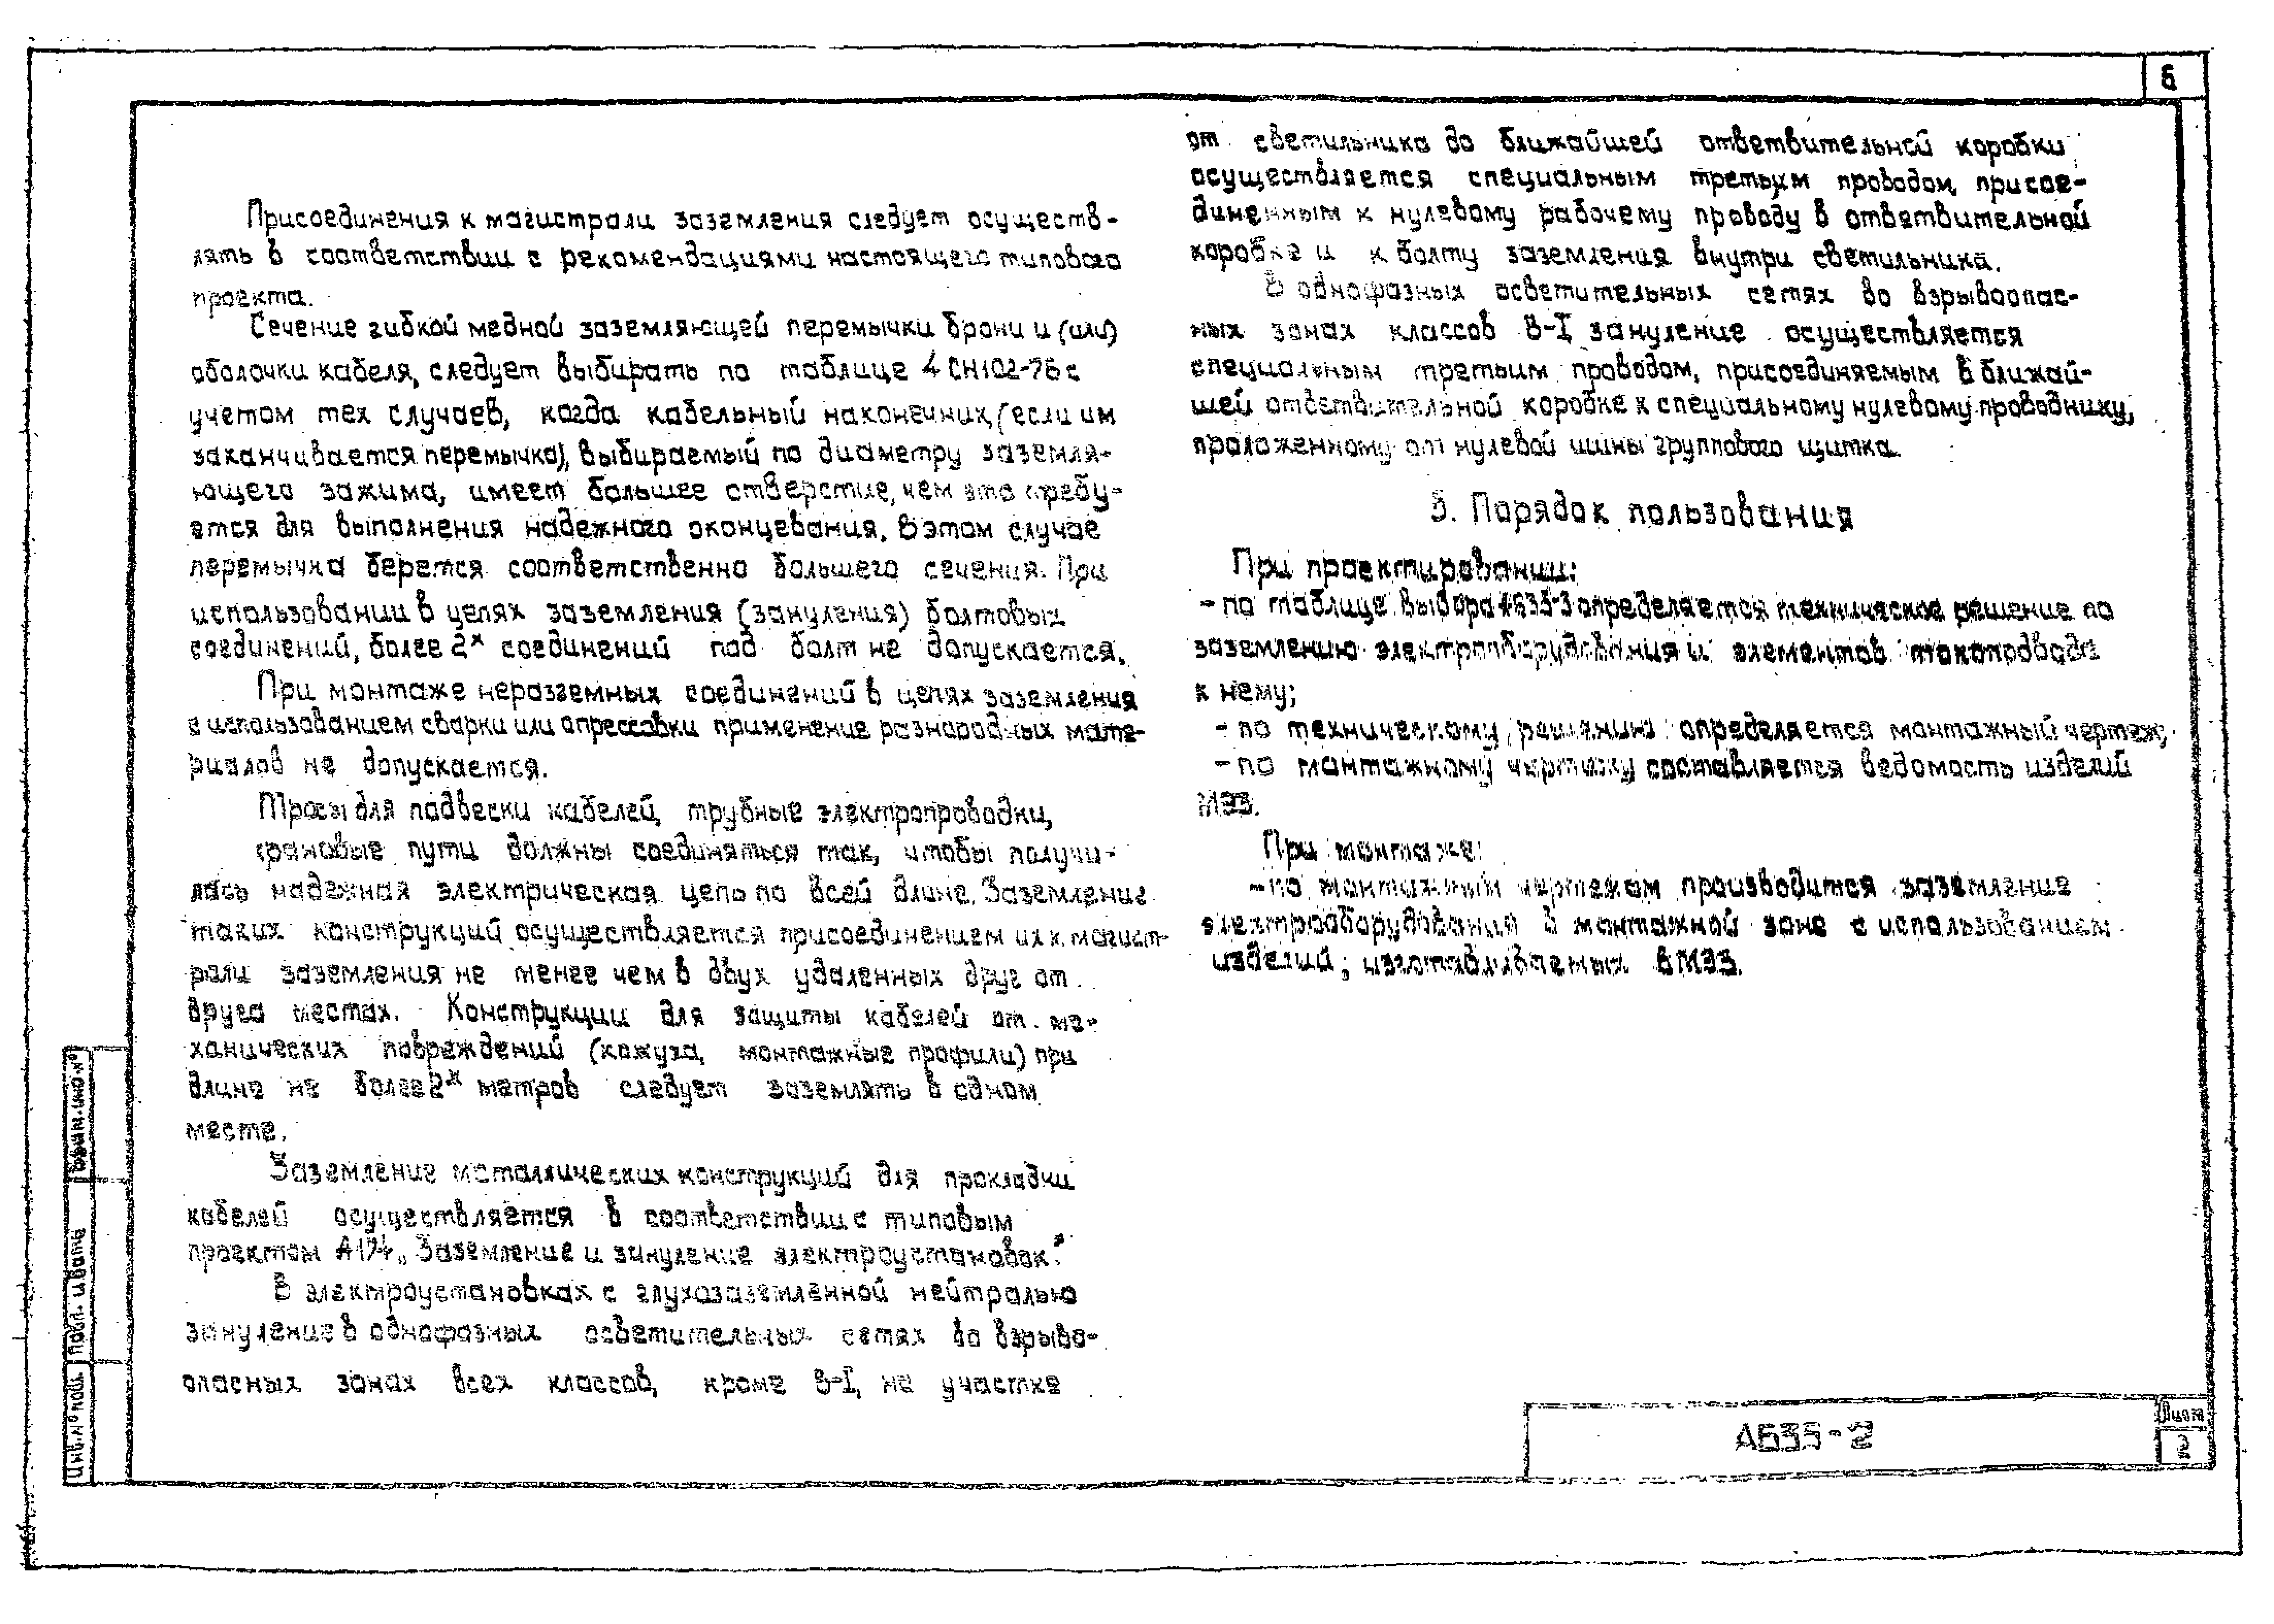 6
Присоединения к магистрали заземления следует осуществ-
лять в соответствии с рекомендациями настоящего типового
проекта.
Сечение гибкой медной заземляющей перемычки брони и (или)
оболочки кабеля, следует выбирать по таблице 4 СН102-76 с
учетом тех случаев, когда кабельный наконечник, (если им
заканчивается перемычка), выбираемый по диаметру заземля-
ющего зажима, имеет большее отверстие, чем это требу-
ется для выполнения надежного оконцевания. В этом случае
перемычка берется соответственно большего сечения. При
использовании в цепях заземления (зануления) болтовых
соединений, более 2х соединений под болт не допускается.
При монтаже неразъемных соединений в цепях заземления
с использованием сварки или опрессовки применение разнородных мате-
риалов не допускается.
Тросы для подвески кабелей, трубные электропроводки,
крановые пути должны соединяться так, чтобы получи-
лась надежная электрическая цепь по всей длине. Заземление
таких конструкций осуществляется присоединением их к магист-
рали заземления не менее чем в двух удаленных друг от
друга местах. Конструкции для защиты кабелей от ме-
ханических повреждений (кожуха, монтажные профили) при
длине не более 2х метров следует заземлять в одном
месте.
Заземление металлических конструкций для прокладки
кабелей осуществляется в соответствии с типовым
проектом А174 „Заземление и зануление электроустановок."
В электроустановках с глухозаземленной нейтралью
зануление в однофазных осветительных сетях во взрыво-
опасных зонах всех классов, кроме В-I, на участке
от светильника до ближайшей ответвительной коробки
осуществляется специальным третьим проводом, присое-
диненным к нулевому рабочему проводу в ответвительной
коробке и к болту заземления внутри светильника.
В однофазных осветительных сетях во взрывоопас-
ных зонах классов В-I зануление осуществляется
специальным третьим проводом, присоединяемым в ближай-
шей ответвительной коробке к специальному нулевому проводнику,
проложенному от нулевой шины группового щитка.
5. Порядок пользования
При проектировании:
- по таблице выбора А635-3 определяется техническое решение по
заземлению электрооборудования и элементов токопровода
к нему;
- по техническому решению определяется монтажный чертеж;
- по монтажному чертежу составляется ведомость изделий
МЭЗ.
При монтаже:
- по монтажным чертежам производится заземление
электрооборудования в монтажной зоне с использованием
изделий, изготавливаемых в МЭЗ.
А635-2
Лист
2
Взам.инв.№
Подп. и дата
Инв.№ подп.